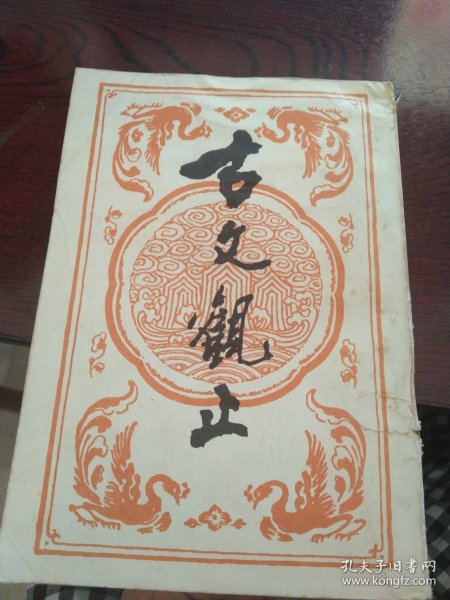 古文觀止
孔夫子旧书网
www.kongfz.com